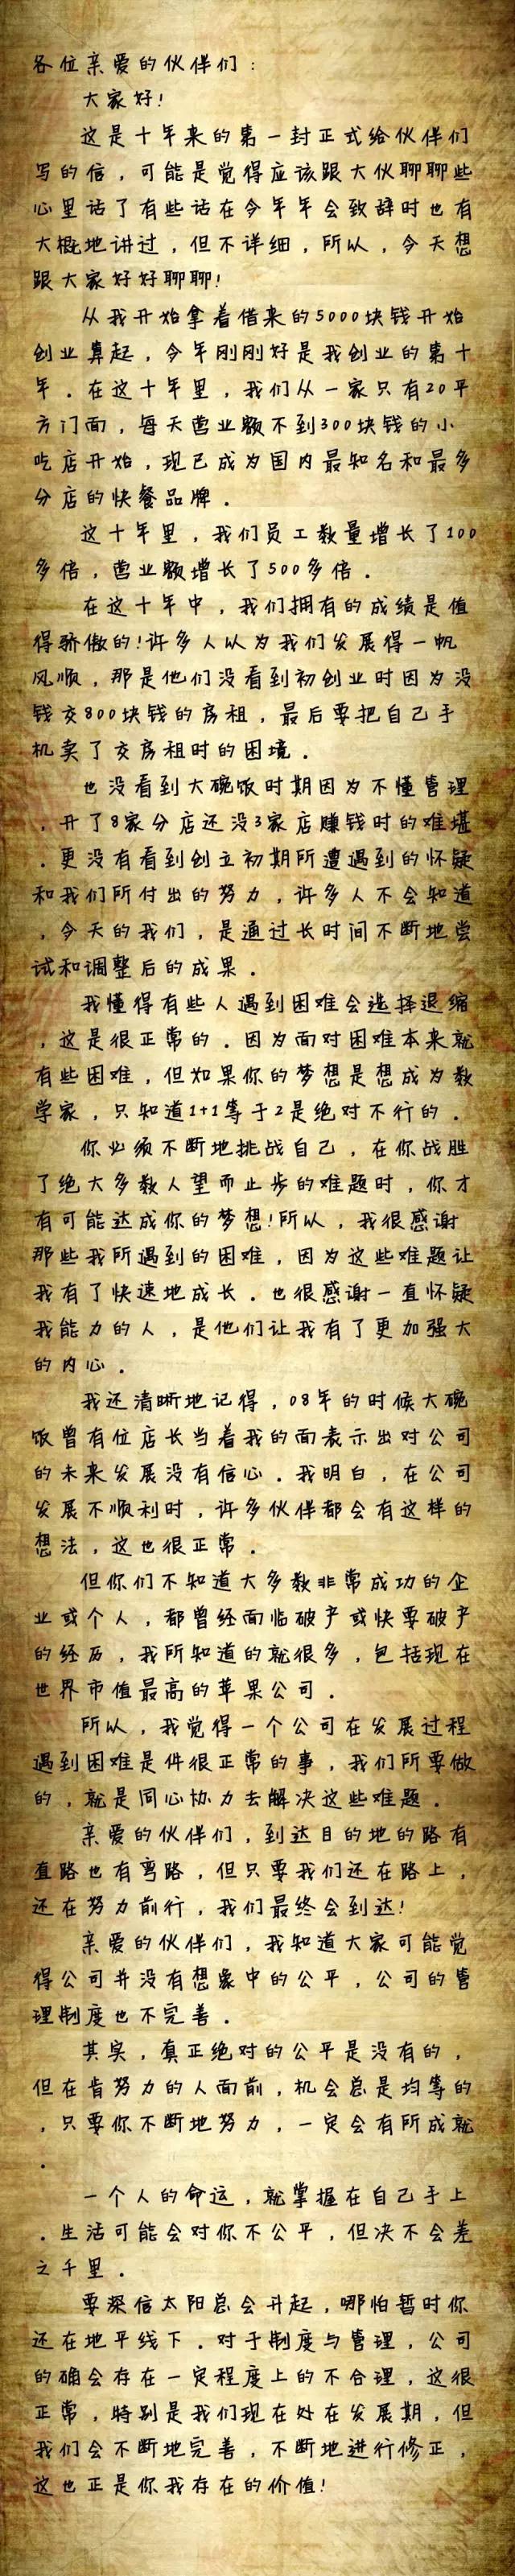 各位亲爱的伙伴们：
大家好！
这是十年来的第一封正式给伙伴们
写的信，可能是觉得应该跟大伙聊聊些
心里话了有些话在今年年会致辞时也有
大概地讲过，但不详细，所以，今天想
跟大家好好聊聊！
从我开始拿着借来的5000块钱开始
创业算起，今年刚刚好是我创业的第十
年．在这十年里，我们从一家只有20平
方门面，每天营业额不到300块钱的小
吃店开始，现已成为国内最知名和最多
分店的快餐品牌．
这十年里，我们员工数量增长了100
多倍，营业额增长了500多倍．
在这十年中，我们拥有的成绩是值
得骄傲的！许多人以为我们发展得一帆
风顺，那是他们没看到初创业时因为没
钱交800块钱的房租，最后要把自己手
机卖了交房租时的困境．
也没看到大碗饭时期因为不懂管理
，开了8家分店还没3家店赚钱时的难堪
．更没有看到创立初期所遭遇到的怀疑
和我们所付出的努力，许多人不会知道
，今天的我们，是通过长时间不断地尝
试和调整后的成果．
我懂得有些人遇到困难会选择退缩
，这是很正常的．因为面对困难本来就
有些困难，但如果你的梦想是想成为数
学家，只知道1+1等于2是绝对不行的．
你必须不断地挑战自己，在你战胜
了绝大多数人望而止步的难题时，你才
有可能达成你的梦想！所以，我很感谢
那些我所遇到的困难，因为这些难题让
我有了快速地成长．也很感谢一直怀疑
我能力的人，是他们让我有了更加强大
的内心．
我还清晰地记得，08年的时候大碗
饭曾有位店长当着我的面表示出对公司
的未来发展没有信心．我明白，在公司
发展不顺利时，许多伙伴都会有这样的
想法，这也很正常．
但你们不知道大多数非常成功的企
业或个人，都曾经面临破产或快要破产
的经历，我所知道的就很多，包括现在
世界市值最高的苹果公司．
所以，我觉得一个公司在发展过程
遇到困难是件很正常的事，我们所要做
的，就是同心协力去解决这些难题．
亲爱的伙伴们，到达目的地的路有
直路也有弯路，但只要我们还在路上，
还在努力前行，我们最终会到达！
亲爱的伙伴们，我知道大家可能觉
得公司并没有想象中的公平，公司的管
理制度也不完善．
其实，真正绝对的公平是没有的，
但在肯努力的人面前，机会总是均等的
，只要你不断地努力，一定会有所成就
．
一个人的命运，就掌握在自己手上
．生活可能会对你不公平，但决不会差
之千里．
要深信太阳总会升起，哪怕暂时你
还在地平线下．对于制度与管理，公司
的确会存在一定程度上的不合理，这很
正常，特别是我们现在处在发展期，但
我们会不断地完善，不断地进行修正，
这也正是你我存在的价值！